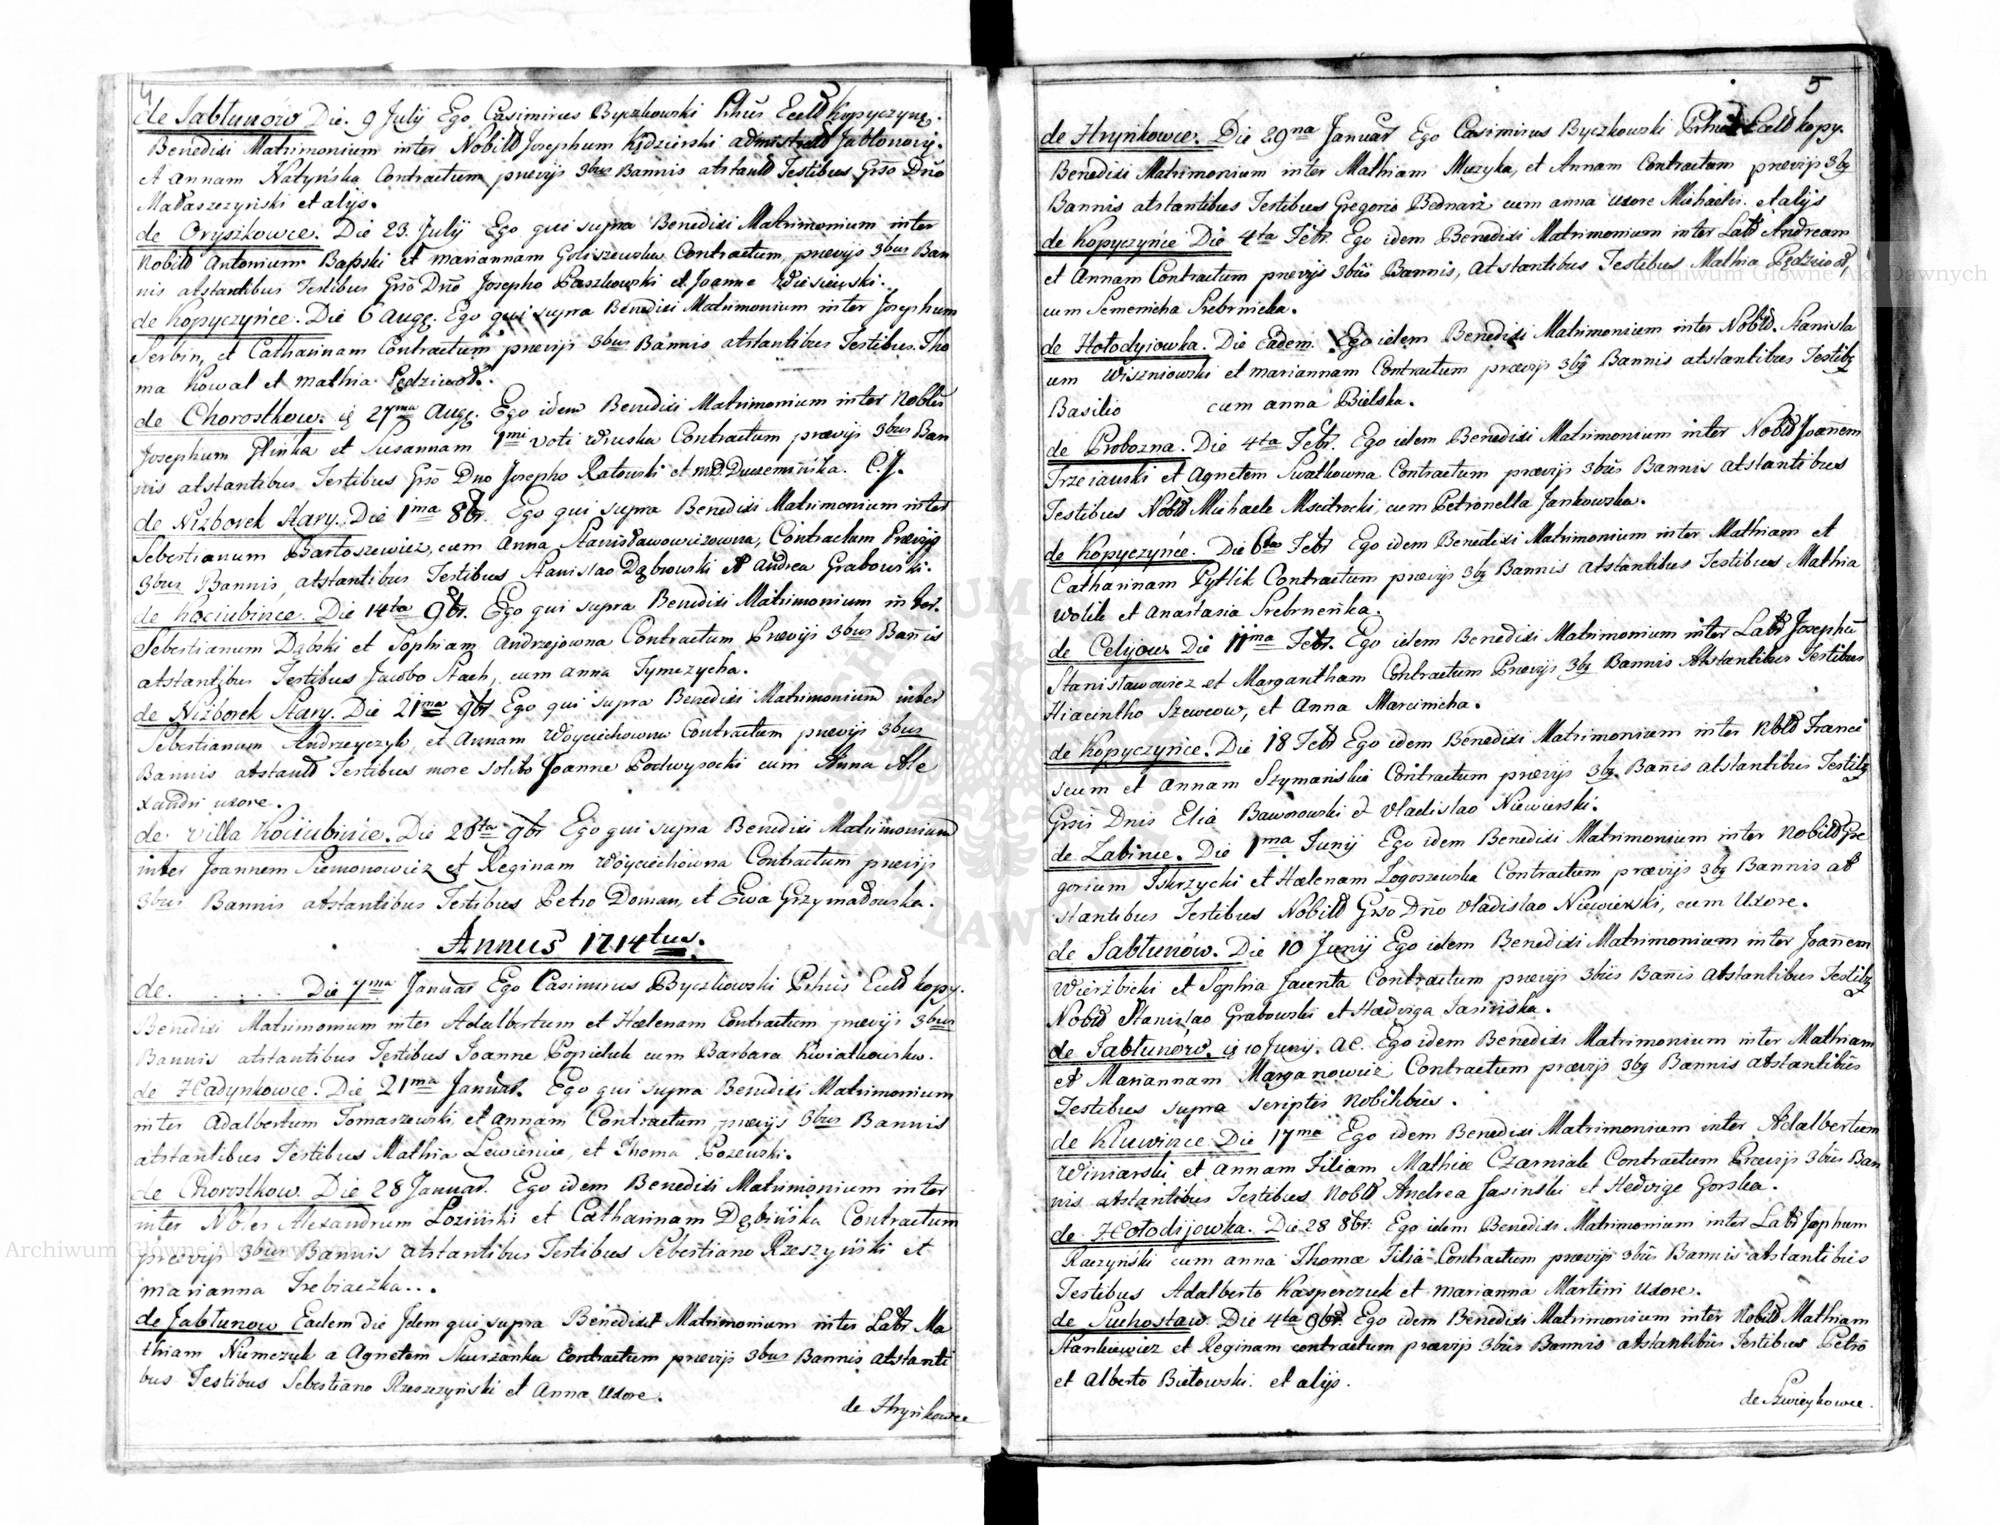 4
de Jabłunów Die. 9 Julij Ego Casimirus Byczkowski Kopyczyn̄.
Benedixi Matrimonium inter Nobild Josephum Kędzierski Jabłonovij.
et annam Natyńska Contractum prævijs 3bus Bannis atstantd Testibus Grso Dño
et alijs.
de Oryszkowce. Die 23. Julij Ego qui supra Benedixi Matrimonium inter
Nobild Antonium Bapski et mariannam Goliszewska Contractum, prævijs 3bus Ban
nis atstantibus Testibus Grso Dño Josepho Paszkowski et Joanne Wiesiewski.
de Kopyczyńce. Die 6 Augg. Ego qui supra Benedixi Matrimonium inter Josephum
Serbin, et Catharinam Contractum prævijs 3bus Bannis atstantibus Testibus. Tho
ma Kowal et mathia Pędziwod.
de Chorostkow. 27ma Augg. Ego idem Benedixi Matrimonium inter Nobles
Josephum Glinka et Susannam 1mi voti Contractum prævijs 3bus Ban
nis atstantibus Testibus Grso Dno Josepho Ratowski et C.J.
de Nizborek Stary. Die 1ma 8br. Ego qui supra Benedixi Matrimonium inter
Sebestianum Bartoszewicz, cum Anna Stanisławowiczowna, Contractum Prævijs
3bus Bannis, atstantibus Testibus Stanislao Dąbrowski et Andrea Grabowski.
de Kociubince. Die 14ta 9br. Ego qui supra Benedixi Matrimonium inter.
Sebestianum Dąbski et Sophiam Andrzejowna Contractum Prævijs 3bus Bañis
atstantibus Testibus Jacobo Stach, cum anna Tymczycha.
de Nizborek Stary. Die 21ma 9br Ego qui supra Benedixi Matrimonium inter
Sebestianum Andrzeyczyk et Annam Woyciechowna Contractum prævijs 3bus
Bannis atstantd Testibus more solito Joanne Podwysocki cum Anna Ale
xandri uxore.
de villa Kociubince. Die 28ta 9br Ego qui supra Benedixi Matrimonium
inter Joannem Siemonowicz et Reginam Woyciechowna Contractum prævijs
3bus Bannis atstantibus Testibus Petro Doman, et Ewa Grzymałowska.
Annus 1714tus.
de. . . . . . Die 7ma Januar Ego Casimirus Byczkowski Kopy.
Benedixi Matrimonium inter Adalbertum et Hælenam Contractum prævijs 3bus
Bannis atstantibus Testibus Joanne Popieluk cum Barbara Kwiatkowska.
de Hadynkowce. Die 21ma Januar. Ego qui supra Benedixi Matrimonium
inter Adalbertum Tomaszewski, et annam Contractum, prævijs 3bus Bannis
atstantibus Testibus Mathia Lewienice, et Thoma Pozewski.
de Chorostkow. Die 28 Januar. Ego idem Benedixi Matrimonium inter
inter Nobles Alexandrum Loziński et Catharinam Dębińska Contractum
prævijs 3bus Bannis atstantibus Testibus Sebestiano Rzeszyński et
marianna Trebiaczka...
de Jabłunow Eadem die Idem qui supra Benedixit Matrimonium inter Labr Ma
thiam Niemczuk a Agnetem Skurzanka Contractum prævijs 3bus Bannis atstanti
bus Testibus Sebestiano Rzeszyński et Anna uxore.
de Hryńkowce
5
de Hryńkowce. Die 29na Januar Ego Casimirus Byczkowski Kopy.
Benedixi Matrimonium inter Mathiam Muzyka, et Annam Contractum prævijs 3bq
Bannis atstantibus Testibus Gregorio Bednarz cum anna uxore Michaelis. et alijs
de Kopyczyńce Die 4ta Febr. Ego idem Benedixi Matrimonium inter Labr Andream
et Annam Contractum prævijs 3bus Bannis, atstantibus Testibus Mathia Pędziwod,
cum Srebrnicka.
de Hołodyiowka. Die eadem. Ego idem Benedixi Matrimonium inter Nobld. Stanisla
um Wiszniowski et mariannam Contractum prævijs 3bq Bannis atstantibus Testibq
Basilio cum anna Bielska.
de Probozna. Die 4ta Febr. Ego idem Benedixi Matrimonium inter Nobld Joañem
Trzciański et Agnetem Swatkowna Contractum prævijs 3bus Bannis atstantibus
Testibus Nobld Michaele Mscitrocki, cum Petronella Jankowska.
de Kopyczyńce. Die 6ta Febr Ego idem Benedixi Matrimonium inter Mathiam et
Catharinam Pytlik Contractum prævijs 3bq Bannis atstantibus Testibus Mathia
Wolik et Anastasia Srebrneńka.
de Celijow. Die 11ma Febr. Ego idem Benedixi Matrimonium inter Labd Josephū
Stanisławowicz et Margaritham Contractum Prævijs 3bq Bannis Atstantibus Testibus
Hiacintho Szewcow, et Anna Marcinicha.
de Kopyczyńce. Die 18 Febr Ego idem Benedixi Matrimonium inter Nbld Franci
scum et Annam Szymańskie Contractum prævijs 3bq Bañis atstantibus Testibq
Grsis Dnis Elia Baworowski & Vladislao Niewierski.
de Zabince. Die 1ma Junij Ego idem Benedixi Matrimonium inter Nobild Gre
gorium Iskrzycki et Hælenam Logoszewska Contractum prævijs 3bq Bannis at
stantibus Testibus Nobild Grso Dño Vladislao Niewierski, cum Uxore.
de Jabłunów. Die 10 Junij Ego idem Benedixi Matrimonium inter Joañem
Wierzbicki et Sophia Jacenta Contractum prævijs 3bus Bañis atstantibus Testibq
Nobld Stanislao Grabowski et Hædviga Jasińska.
de Jabłunow. 10 Junij. ac. Ego idem Benedixi Matrimonium inter Mathiam
et Mariannam Marganowicz Contractum prævijs 3bq Bannis atstantibus
Testibus supra scriptis Nobilibus.
de Kluwince Die 17ma Ego idem Benedixi Matrimonium inter Adalbertum
Winiarski, et annam Filiam Mathiæ Czarniak Contractum Prævijs 3bus Ban
nis atstantibus Testibus Nobld Andrea Jasinski et Hedvige Gorska.
de Hołodijowka. Die 28 8br. Ego idem Benedixi Matrimonium inter Labd Josphum
Raczyński cum anna Thomæ Filia Contractum prævijs 3bus Bannis atstantibus
Testibus Adalberto Kasperczuk et marianna Martini Uxore.
de Suchostaw. Die 4ta 9br. Ego idem Benedixi Matrimonium inter Nobld Mathiam
Stankiewicz et Reginam contractum prævijs 3bus Bannis atstantibus Testibus Petro
et Alberto Bielowski. et alijs.
de Szwieykowce.
Archiwum Główne Akt Dawnych
Archiwum Główne Akt Dawnych